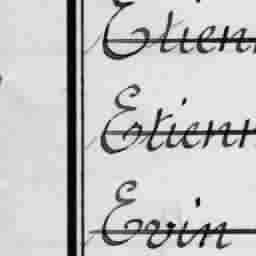 Etien
Etien
Evin